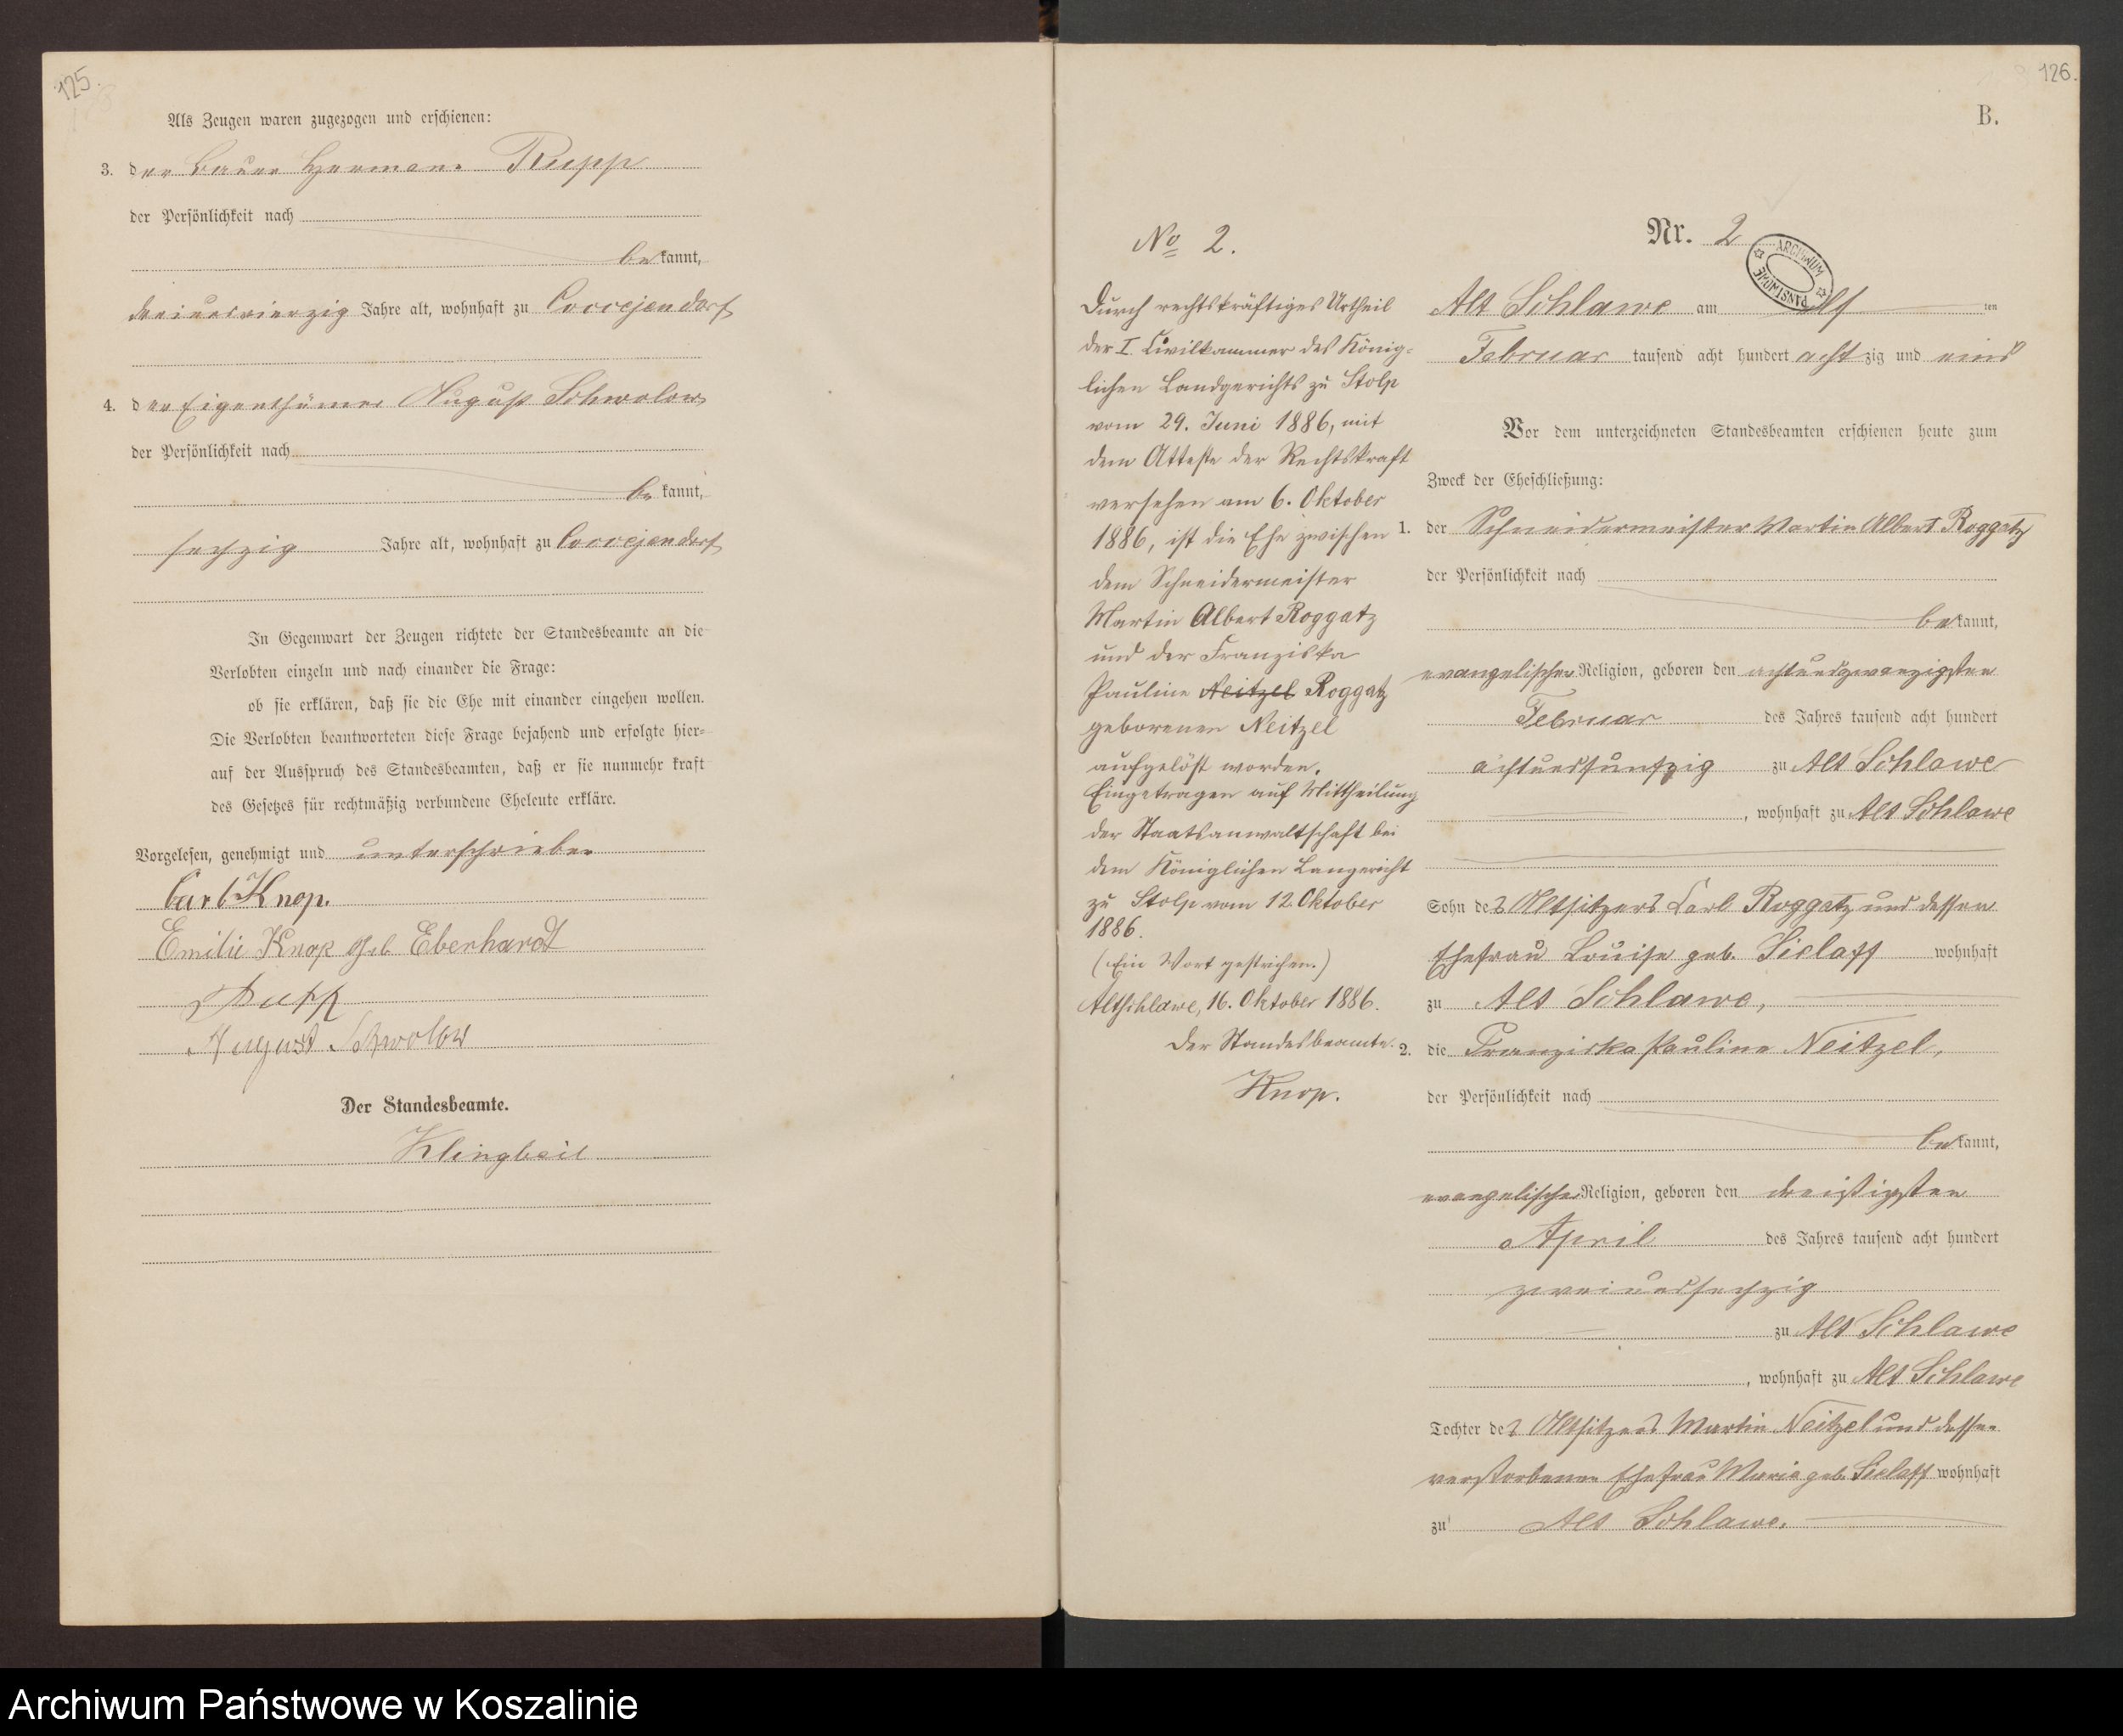 125.
Als Zeugen waren zugezogen und erschienen:
3. der Bauer Hermann Rupp
der Persönlichkeit nach
be kannt,
dreiundvierzig Jahre alt, wohnhaft zu Coccejendorf
4. der Eigenthümer August Schwolow
der Persönlichkeit nach
be kannt,
sechzig Jahre alt, wohnhaft zu Coccejendorf
In Gegenwart der Zeugen richtete der Standesbeamte an die
Verlobten einzeln und nach einander die Frage:
ob sie erklären, daß sie die Ehe mit einander eingehen wollen.
Die Verlobten beantworteten diese Frage bejahend und erfolgte hier-
auf der Ausspruch des Standesbeamten, daß er sie nunmehr kraft
des Gesetzes für rechtmäßig verbundene Eheleute erkläre.
Vorgelesen, genehmigt und unterschrieben
Carl Knop.
Emilie Knop geb Eberhardt
Rupp
August Schwolow
Der Standesbeamte.
Klingbeil
126.
B.
No 2.
Durch rechtskräftiges Urtheil
der I. Civilkammer des König-
lichen Landgerichts zu Stolp
vom 29. Juni 1886, mit
dem Atteste der Rechtskraft
versehen am 6. Oktober
1886, ist die Ehe zwischen
dem Schneidermeister
Martin Albert Roggatz
und der Franziska
Pauline Neitzel Roggatz
geborenen Neitzel
aufgelöst worden.
Eingetragen auf Mittheilung
der Staatsanwaltschaft bei
dem Königlichen Langericht
zu Stolp vom 12. Oktober
1886.
(Ein Wort gestrichen.)
Altschlawe, 16. Oktober 1886.
Der Standesbeamte.
Knop.
Nr. 2
ARCHIWUM PAŃSTWOWE
Alt Schlawe am elf ten
Februar tausend acht hundert acht zig und eins
Vor dem unterzeichneten Standesbeamten erschienen heute zum
Zweck der Eheschließung:
1. der Schneidermeister Martin Albert Roggatz
der Persönlichkeit nach
be kannt,
evangelischer Religion, geboren den achtundzwanzigsten
Februar des Jahres tausend acht hundert
achtundfunfzig zu Alt Schlawe
, wohnhaft zu Alt Schlawe
Sohn des Altsitzers Carl Roggatz und dessen
Ehefrau Louise geb. Sielaff wohnhaft
zu Alt Schlawe,
2. die Franziska Pauline Neitzel,
der Persönlichkeit nach
be kannt,
evangelischer Religion, geboren den dreißigsten
April des Jahres tausend acht hundert
zweiundsechzig
zu Alt Schlawe
, wohnhaft zu Alt Schlawe
Tochter des Altsitzers Martin Neitzel und dessen
verstorbenen Ehefrau Marie geb. Sielaff wohnhaft
zu Alt Schlawe.
Archiwum Państwowe w Koszalinie